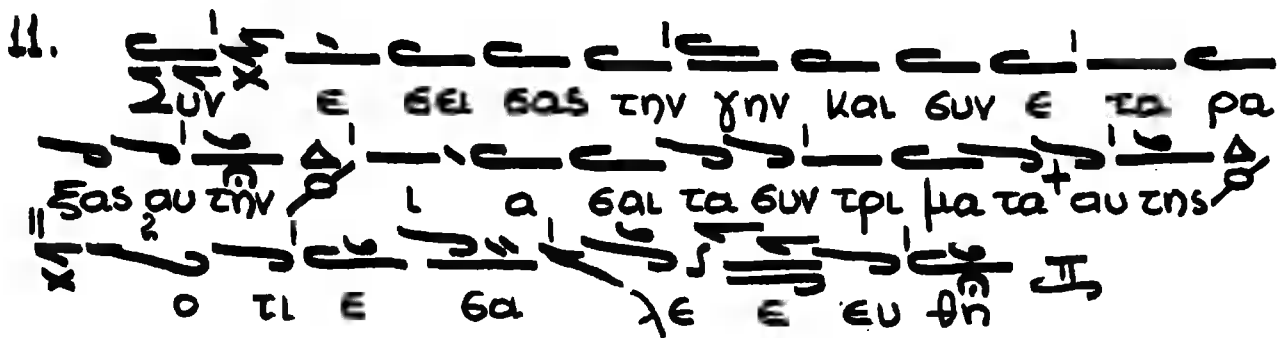 11.
Συν ε σει σας την γην και συν ε τα ρα
ξας αυ την ι α σαι τα συν τρι μα τα αυ της
ο τι ε σα λε ε ευ θη